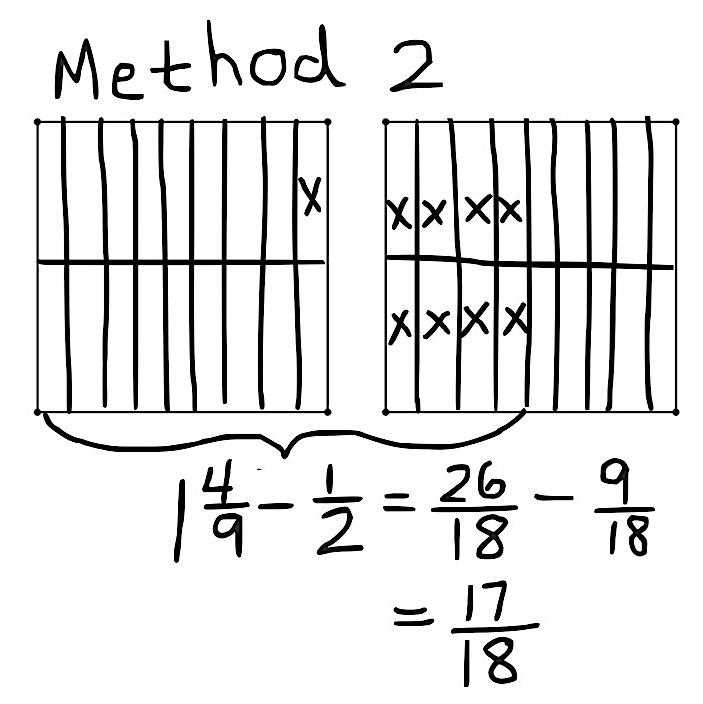 Method 2
X
X X X X
X X X X
1 4/9 - 1/2 = 26/18 - 9/18
= 17/18